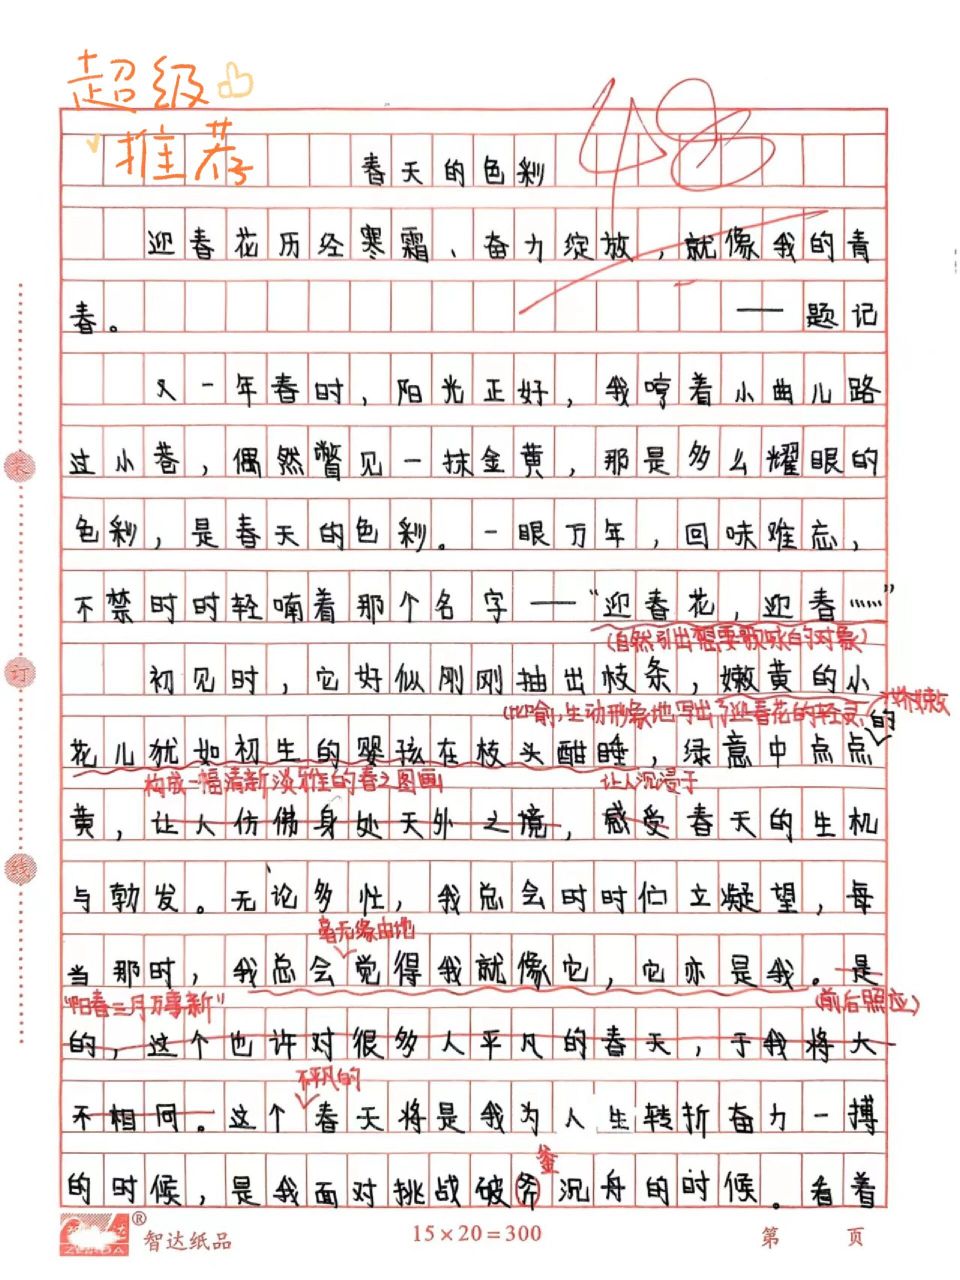 超级
推荐
48
春天的色彩
迎春花历经寒霜、奋力绽放，就像我的青
春。 ——题记
又一年春时，阳光正好，我哼着小曲儿路
过小巷，偶然瞥见一抹金黄，那是多么耀眼的
色彩，是春天的色彩。一眼万年，回味难忘，
不禁时时轻喃着那个名字——“迎春花，迎春……”
（自然引出想要歌咏的对象）
初见时，它好似刚刚抽出枝条，嫩黄的小
（比喻，生动形象地写出了迎春花的轻灵娇嫩
花儿犹如初生的婴孩在枝头酣睡，绿意中点点的
构成一幅清新淡雅的春之图画 让人沉浸于
黄，让人仿佛身处天外之境，感受春天的生机
与勃发。无论多忙，我总会时时伫立凝望，每
毫无缘由地
当那时，我总会觉得我就像它，它亦是我。是
“阳春三月万事新” （前后照应）
的，这个也许对很多人平凡的春天，于我将大
不平凡的
不相同。这个春天将是我为人生转折奋力一搏
釜
的时候，是我面对挑战破斧沉舟的时候。看着
装
订
线
智达
ZHIDA
®
智达纸品
15×20=300
第 页